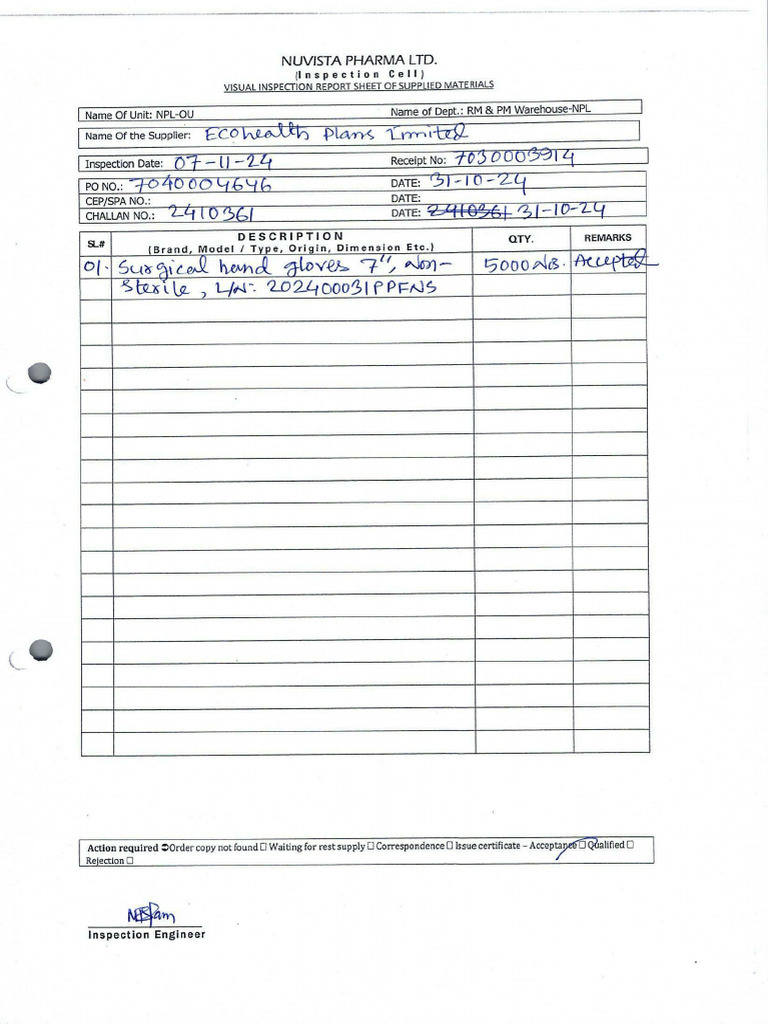 NUVISTA PHARMA LTD.
(Inspection Cell)
VISUAL INSPECTION REPORT SHEET OF SUPPLIED MATERIALS
Name Of Unit: NPL-OU Name of Dept.: RM & PM Warehouse-NPL
Name Of the Supplier: ECOhealth Plans Limited
Inspection Date: 07-11-24 Receipt No: 7030003914
PO NO.: 7040004646 DATE: 31-10-24
CEP/SPA NO.: DATE:
CHALLAN NO.: 2410361 DATE: 2410361 31-10-24
SL# DESCRIPTION QTY. REMARKS
(Brand, Model / Type, Origin, Dimension Etc.)
01. Surgical hand gloves 7", Non- 5000 NB. Accepted
Sterile, L/N: 202400031PPFNS
Action required ➲Order copy not found ☐ Waiting for rest supply ☐ Correspondence ☐ Issue certificate – Acceptance ☐ Qualified ☐
Rejection ☐
Inspection Engineer